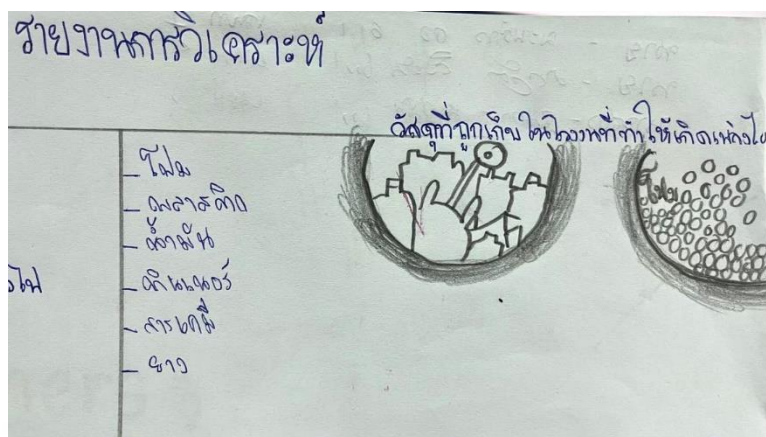 รายงานการวิเคราะห์
วัสดุที่ถูกเก็บในโรงงานที่ทำให้เกิดเพลิงไ
- โฟม
โฟม
- พลาสติก
- น้ำมัน
- ทินเนอร์
- สารเคมี
- ยาง